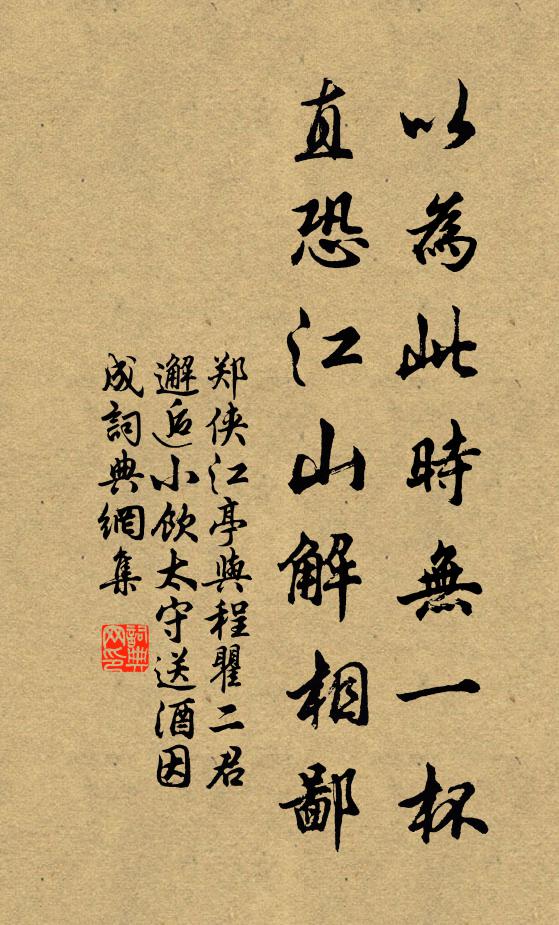 以為此時無一杯
直恐江山解相鄙
郑侠江亭與程瞿二君
邂逅小飲太守送酒因
成詞典網集
詞典网印